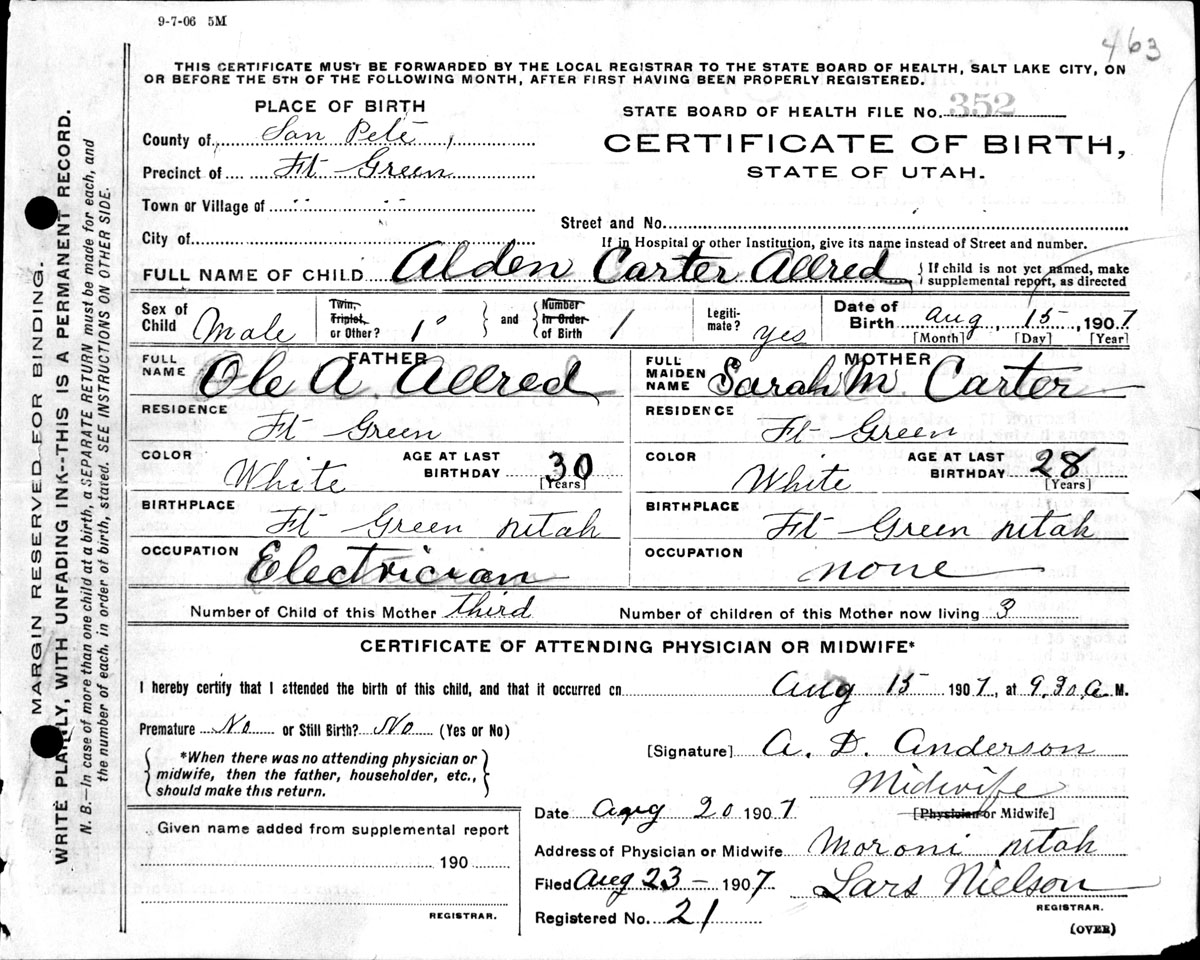 9-7-06 5M
463
THIS CERTIFICATE MUST BE FORWARDED BY THE LOCAL REGISTRAR TO THE STATE BOARD OF HEALTH, SALT LAKE CITY, ON
OR BEFORE THE 5TH OF THE FOLLOWING MONTH, AFTER FIRST HAVING BEEN PROPERLY REGISTERED.
PLACE OF BIRTH
County of San Pete,
Precinct of Ft Green
Town or Village of " "
City of
STATE BOARD OF HEALTH FILE No. 352
CERTIFICATE OF BIRTH,
STATE OF UTAH.
Street and No.
If in Hospital or other Institution, give its name instead of Street and number.
FULL NAME OF CHILD Alden Carter Allred { If child is not yet named, make
supplemental report, as directed
Sex of Child Male Twin, Triplet, or Other? 1 and Number in Order of Birth 1 Legitimate? yes Date of Birth Aug, 15, 1907
[Month] [Day] [Year]
FATHER
FULL NAME Ole A. Allred
RESIDENCE Ft Green
COLOR White AGE AT LAST BIRTHDAY 30
[Years]
BIRTHPLACE Ft Green Utah
OCCUPATION Electrician
MOTHER
FULL MAIDEN NAME Sarah M. Carter
RESIDENCE Ft Green
COLOR White AGE AT LAST BIRTHDAY 28
[Years]
BIRTHPLACE Ft Green Utah
OCCUPATION none
Number of Child of this Mother third Number of children of this Mother now living 3
CERTIFICATE OF ATTENDING PHYSICIAN OR MIDWIFE*
I hereby certify that I attended the birth of this child, and that it occurred on Aug 15 1907, at 9.30 a M.
Premature No or Still Birth? No (Yes or No)
*When there was no attending physician or
midwife, then the father, householder, etc.,
should make this return.
[Signature] A. D. Anderson
Midwife
[Physician or Midwife]
Date Aug 20 1907
Address of Physician or Midwife Moroni Utah
Filed Aug 23 - 1907 Lars Nielson
REGISTRAR.
Registered No. 21
(OVER)
Given name added from supplemental report
190
REGISTRAR.
MARGIN RESERVED FOR BINDING.
WRITE PLAINLY, WITH UNFADING INK--THIS IS A PERMANENT RECORD.
N. B.—In case of more than one child at a birth, a SEPARATE RETURN must be made for each, and
the number of each, in order of birth, stated. SEE INSTRUCTIONS ON OTHER SIDE.